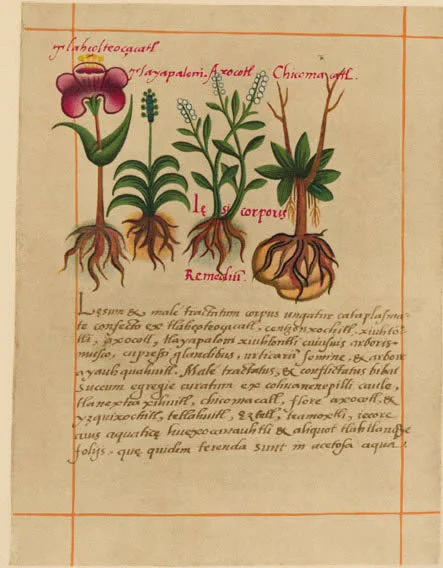 Tlahcolteoçacatl.
Tlayapaloni. Axocotl. Chicomacatl.
Lę si corporis
Remediũ.
Lęsum & male tractatum corpus ungatur cataplasma
te confecto ex tlahcolteoçacatl,
tli, axocotl, tlayapaloni xiuhtontli cuiusuis arboris
musco, cupressi glandibus, urticarũ semine, & arbore
ayauhquahuitl. Male tractatus, & conflictatus bibat
succum egregie curatum ex cohuanenepilli caule,
tlanextia xihuitl, chicomacatl, flore axocotl, &
yzquixochitl, tetlahuitl, eztetl, teamoxtli, iecore
auis aquaticę huexocanauhtli & aliquot
folijs. quę quidem terenda sunt in acetosa aqua.